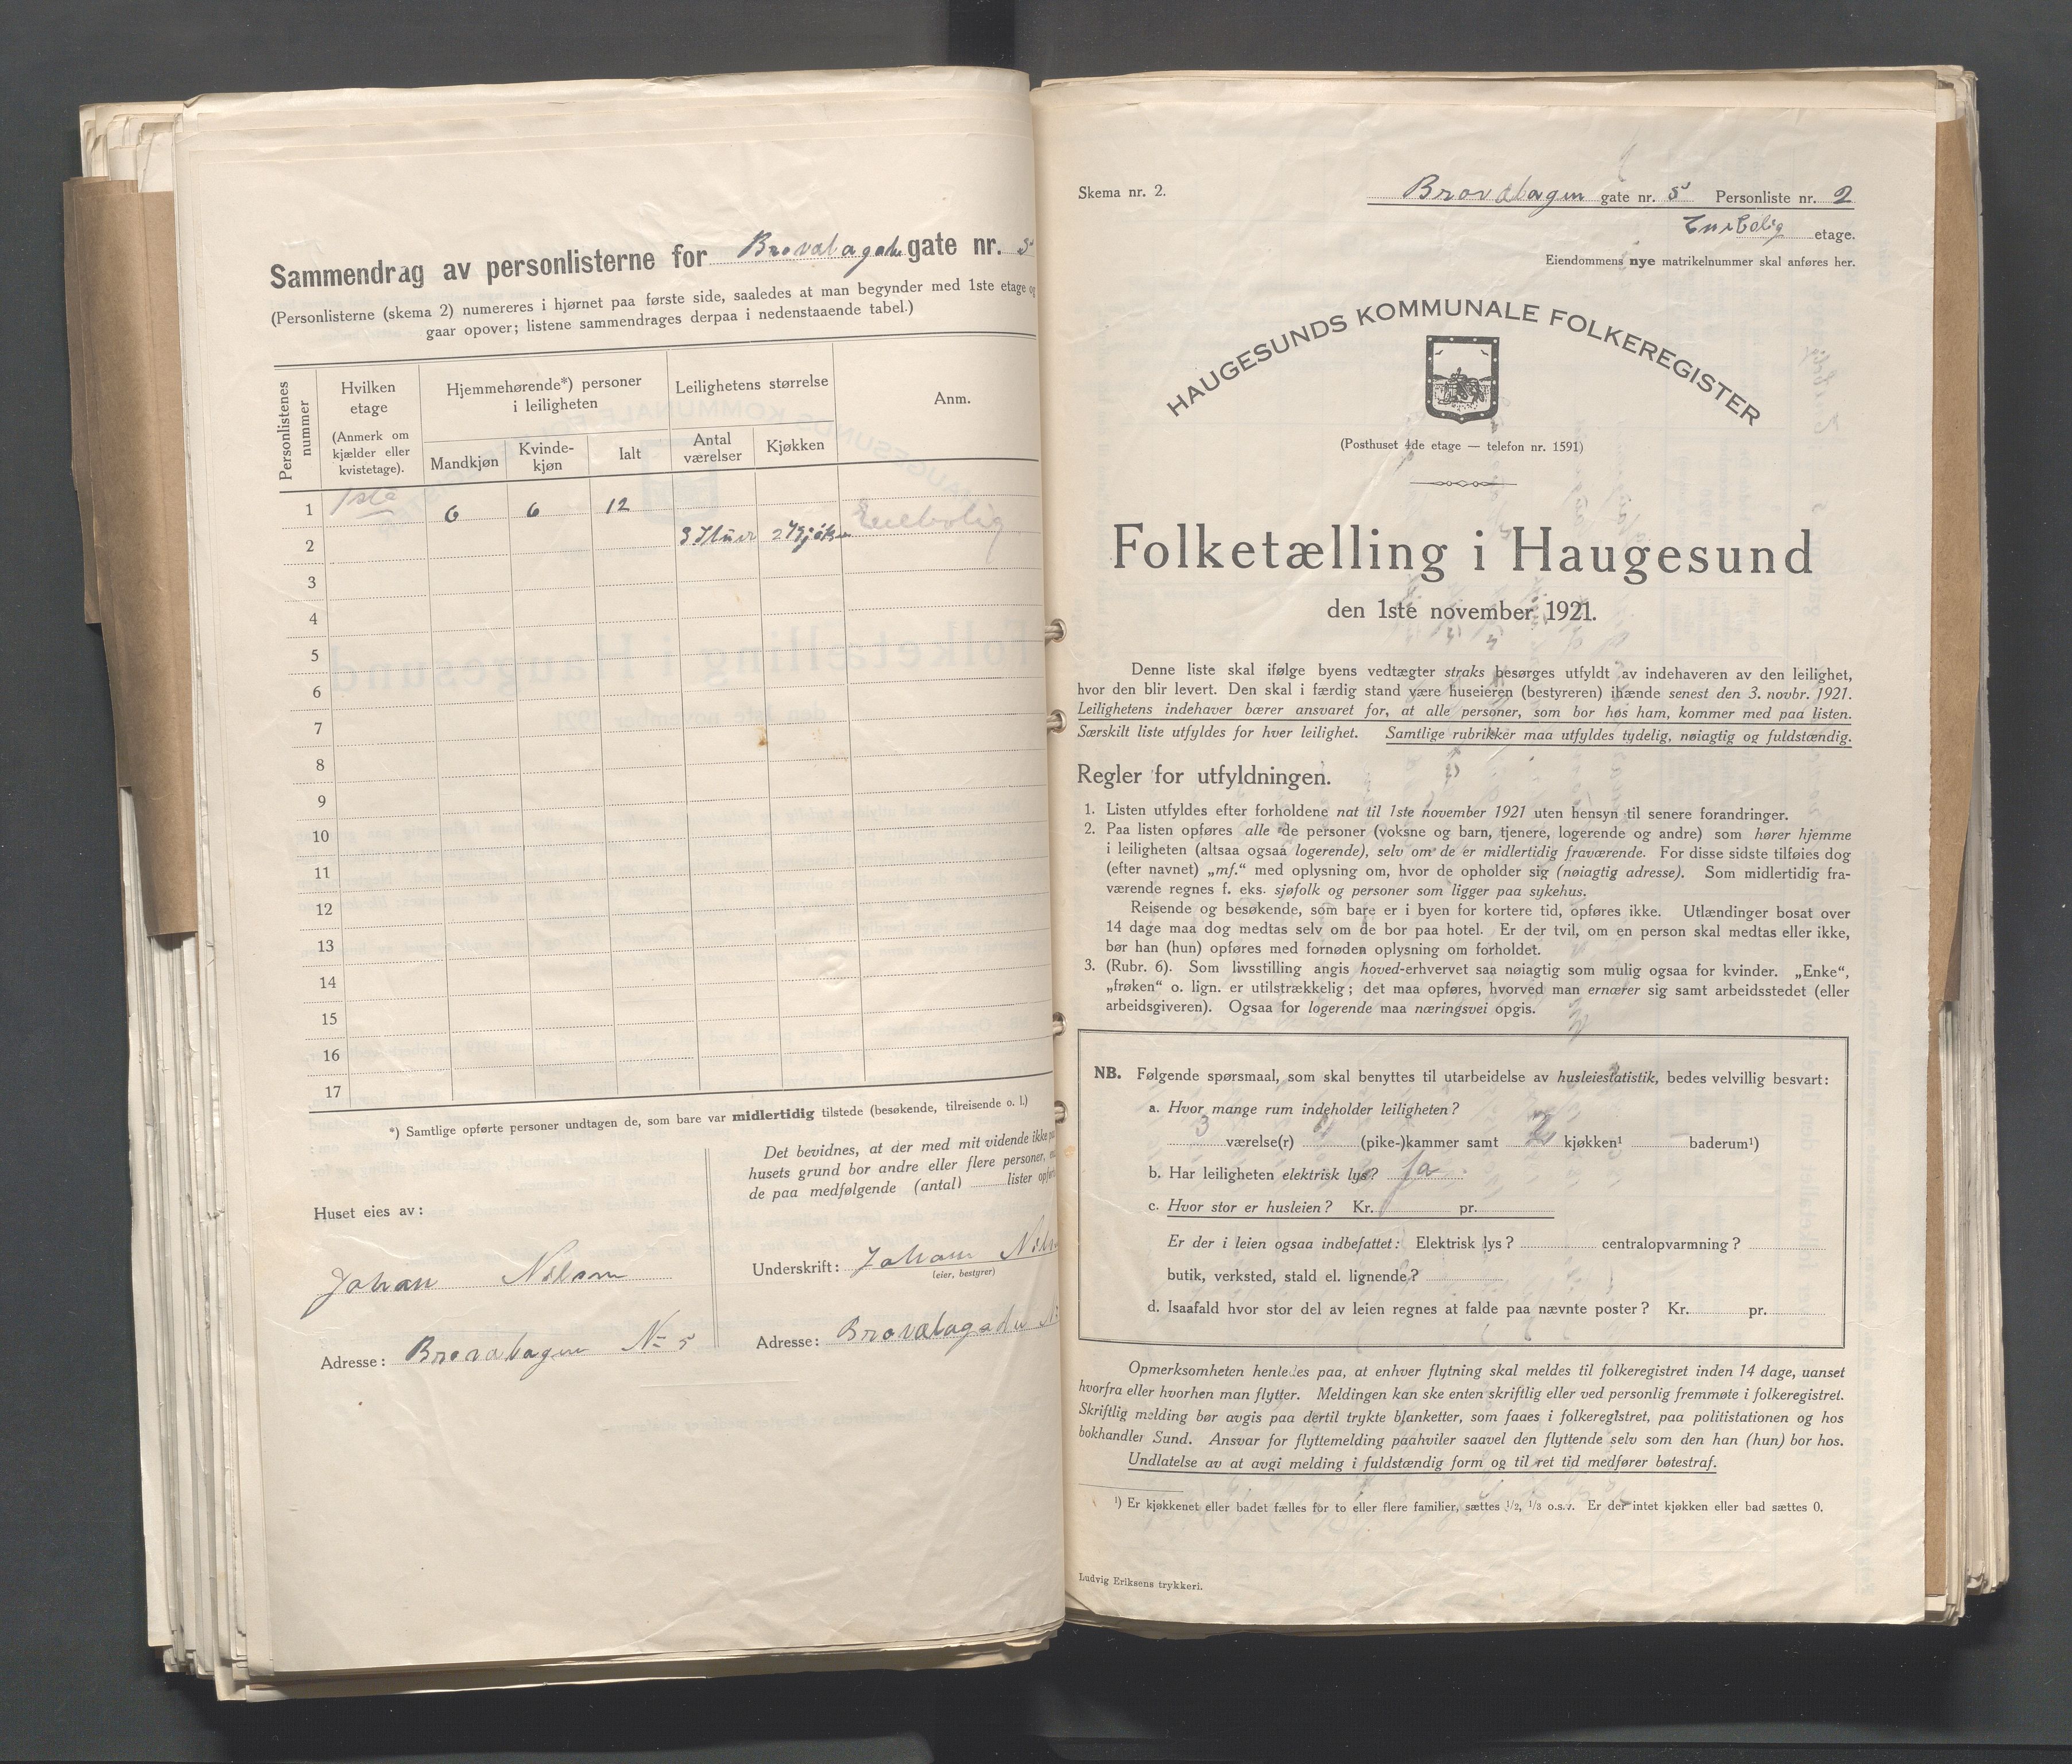 Sammendrag av personlisterne for Brovalagate gate nr. 5
(Personlisterne (skema 2) numereres i hjørnet paa første side, saaledes at man begynder med 1ste etage og
gaar opover; listene sammendrages derpaa i nedenstaaende tabel.)
Personlistenes nummer
Hvilken etage
(Anmerk om kjælder eller kvistetage).
Hjemmehørende*) personer i leiligheten
Mandkjøn
Kvinde-kjøn
Ialt
Leilighetens størrelse
Antal værelser
Kjøkken
Anm.
1 1ste 6 6 12 Enebolig
2 3 Stuer 2 Kjøken
3
4
5
6
7
8
9
10
11
12
13
14
15
16
17
*) Samtlige opførte personer undtagen de, som bare var midlertidig tilstede (besøkende, tilreisende o. l.)
Huset eies av:
Johan Nilsen
Adresse: Brovalagen No 5
Det bevidnes, at der med mit vidende ikke pa
husets grund bor andre eller flere personer, en
de paa medfølgende (antal) lister opført
Underskrift: Johan Nils
(eier, bestyrer)
Adresse: Brovalagade N
Skema nr. 2.
Brovalagen gate nr. 5 Personliste nr. 2
Enebolig etage.
Eiendommens nye matrikelnummer skal anføres her.
HAUGESUNDS KOMMUNALE FOLKEREGISTER
(Posthuset 4de etage — telefon nr. 1591)
Folketælling i Haugesund
den 1ste november 1921.
Denne liste skal ifølge byens vedtægter straks besørges utfyldt av indehaveren av den leilighet,
hvor den blir levert. Den skal i færdig stand være huseieren (bestyreren) ihænde senest den 3. novbr. 1921.
Leilighetens indehaver bærer ansvaret for, at alle personer, som bor hos ham, kommer med paa listen.
Særskilt liste utfyldes for hver leilighet. Samtlige rubrikker maa utfyldes tydelig, nøiagtig og fuldstændig.
Regler for utfyldningen.
1. Listen utfyldes efter forholdene nat til 1ste november 1921 uten hensyn til senere forandringer.
2. Paa listen opføres alle de personer (voksne og barn, tjenere, logerende og andre) som hører hjemme
i leiligheten (altsaa ogsaa logerende), selv om de er midlertidig fraværende. For disse sidste tilføies dog
(efter navnet) „mf.“ med oplysning om, hvor de opholder sig (nøiagtig adresse). Som midlertidig fra-
værende regnes f. eks. sjøfolk og personer som ligger paa sykehus.
Reisende og besøkende, som bare er i byen for kortere tid, opføres ikke. Utlændinger bosat over
14 dage maa dog medtas selv om de bor paa hotel. Er der tvil, om en person skal medtas eller ikke,
bør han (hun) opføres med fornøden oplysning om forholdet.
3. (Rubr. 6). Som livsstilling angis hoved-erhvervet saa nøiagtig som mulig ogsaa for kvinder. „Enke“,
„frøken“ o. lign. er utilstrækkelig; det maa opføres, hvorved man ernærer sig samt arbeidsstedet (eller
arbeidsgiveren). Ogsaa for logerende maa næringsvei opgis.
NB. Følgende spørsmaal, som skal benyttes til utarbeidelse av husleiestatistik, bedes velvillig besvart:
a. Hvor mange rum indeholder leiligheten?
3 værelse(r) (pike-)kammer samt 2 kjøkken¹ baderum¹)
b. Har leiligheten elektrisk lys? Ja
c. Hvor stor er husleien? Kr. pr.
Er der i leien ogsaa indbefattet: Elektrisk lys? centralopvarmning?
butik, verksted, stald el. lignende?
d. Isaafald hvor stor del av leien regnes at falde paa nævnte poster? Kr. pr.
Opmerksomheten henledes paa, at enhver flytning skal meldes til folkeregistret inden 14 dage, uanset
hvorfra eller hvorhen man flytter. Meldingen kan ske enten skriftlig eller ved personlig fremmøte i folkeregistret.
Skriftlig melding bør avgis paa dertil trykte blanketter, som faaes i folkeregistret, paa politistationen og hos
bokhandler Sund. Ansvar for flyttemelding paahviler saavel den flyttende selv som den han (hun) bor hos.
Undlatelse av at avgi melding i fuldstændig form og til ret tid medfører bøtestraf.
¹) Er kjøkkenet eller badet fælles for to eller flere familier, sættes 1/2, 1/3 o.s.v. Er der intet kjøkken eller bad sættes 0.
Ludvig Eriksens trykkeri.